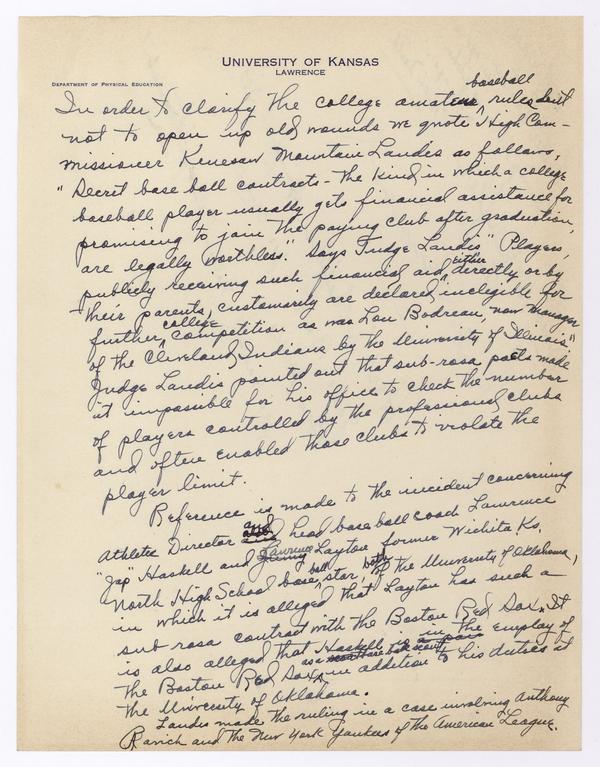 UNIVERSITY OF KANSAS
LAWRENCE
DEPARTMENT OF PHYSICAL EDUCATION
baseball
In order to clarify the college amateur rules but
not to open up old wounds we quote High Com-
missioner Kenesaw Mountain Landis as follows,
"Secret base ball contracts - the kind in which a college
baseball player usually gets financial assistance for
promising to join the paying club after graduation,
are legally worthless." Says Judge Landis "Players,
either
publicly receiving such financial aid, directly or by
their parents, customarily are declared inelegible for
college
further competition as was Lou Bodreau, now manager
of the Cleveland Indians by the University of Illinois"
Judge Landis pointed out that sub-rosa pacts made
it impossible for his office to check the number
of players controlled by the professional clubs
and often enabled those clubs to violate the
player limit.
Reference is made to the incident concerning
and
Athletic Director head base ball coach Lawrence
"Jap" Haskell and Lawrence Layton, former Wichita, Ks.
ball both
North High School base star, of the University of Oklahoma,
in which it is alleged that Layton has such a
sub rosa contract with the Boston Red Sox. It
is also alleged that Haskell is in the employ of
as a scout
the Boston Red Sox, in addition to his duties at
the University of Oklahoma.
Landis made the ruling in a case involving Anthony
Ravich and the New York Yankees of the American League.